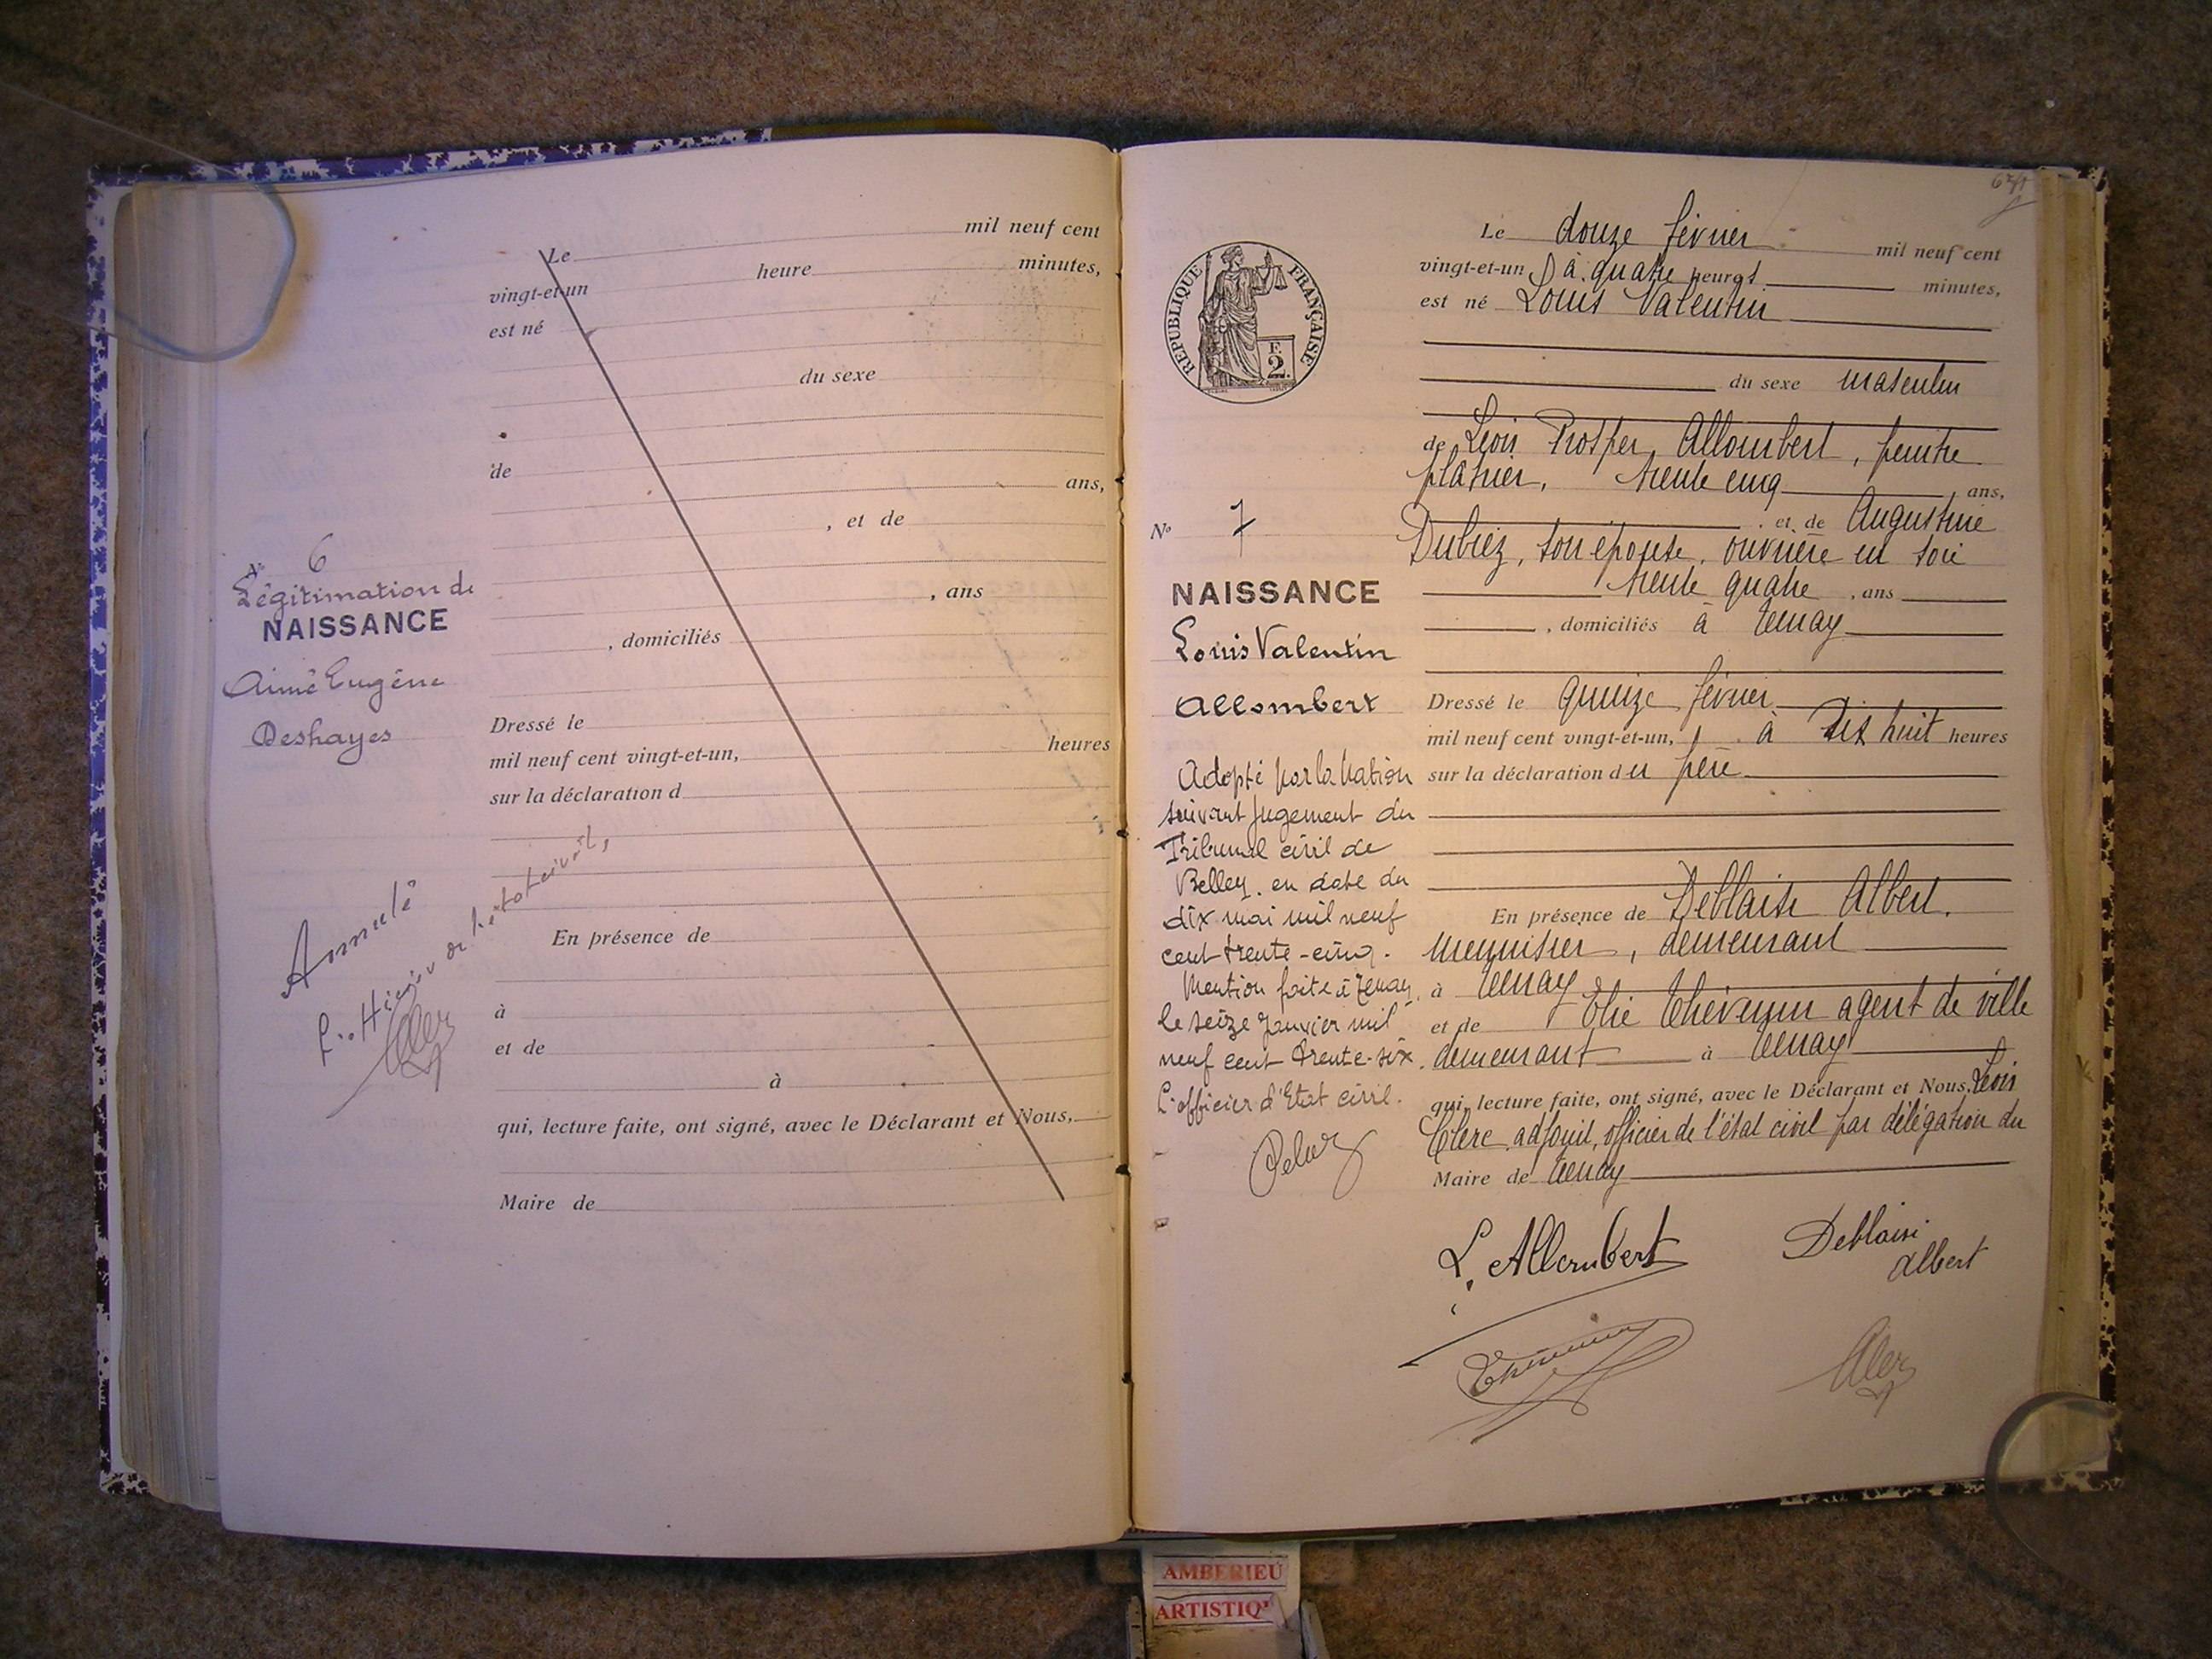 Le mil neuf cent
vingt-et-un heure minutes,
est né
du sexe
de
ans,
, et de
, ans
, domiciliés
Dressé le
mil neuf cent vingt-et-un, heures
sur la déclaration d
En présence de
à
et de
à
qui, lecture faite, ont signé, avec le Déclarant et Nous,
Maire de
N° 6
Légitimation de
NAISSANCE
Aimé Eugène
Deshayes
Annulé
L'officier de l'état civil,
Clerc
671
REPUBLIQUE FRANÇAISE
F.
2.
N° 7
NAISSANCE
Louis Valentin
Allombert
Adopté par la Nation
suivant jugement du
Tribunal civil de
Belley. en date du
dix mai mil neuf
cent trente-cinq.
Mention faite à Tenay,
le seize janvier mil
neuf cent trente-six.
L'officier d'Etat civil.
Le douze février mil neuf cent
vingt-et-un à quatre heures minutes,
est né Louis Valentin
du sexe masculin
de Léon Prosper Allombert, peintre
plâtrier, trente cinq ans,
, et de Augustine
Dubiez, son épouse, ouvrière en soie
trente quatre , ans
, domiciliés à Tenay
Dressé le quinze février
mil neuf cent vingt-et-un, à dix huit heures
sur la déclaration du père
En présence de Deblaise Albert.
menuisier, demeurant
à Tenay
et de Elie Thévenin agent de ville
demeurant à Tenay
qui, lecture faite, ont signé, avec le Déclarant et Nous, Léon
Clerc adjoint, officier de l'état civil par délégation du
Maire de Tenay
L. Allombert
Deblaise
Albert
Thévenin
Clerc
AMBERIEU
ARTISTIQ